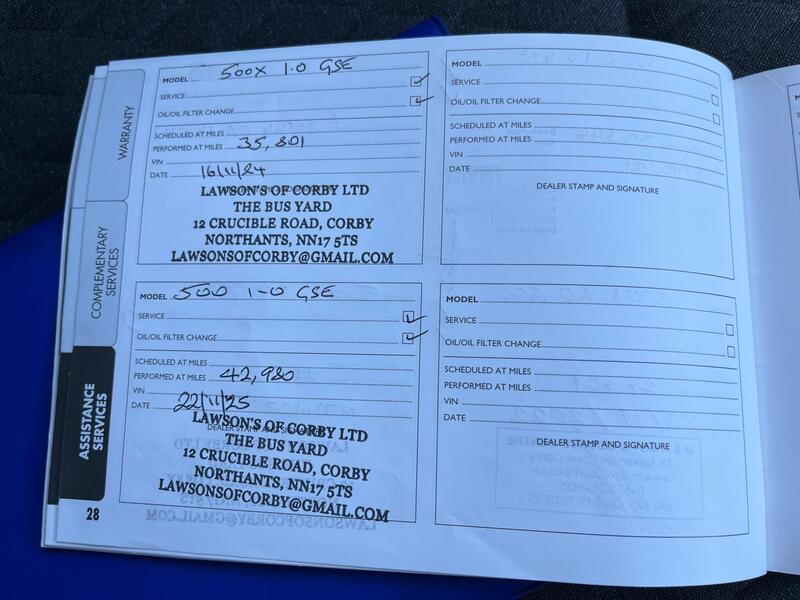 WARRANTY
COMPLEMENTARY
SERVICES
ASSISTANCE
SERVICES
MODEL 500X 1.0 GSE
SERVICE
OIL/OIL FILTER CHANGE
SCHEDULED AT MILES
PERFORMED AT MILES 35,801
VIN
DATE 16/11/24
LAWSON'S OF CORBY LTD
THE BUS YARD
12 CRUCIBLE ROAD, CORBY
NORTHANTS, NN17 5TS
LAWSONSOFCORBY@GMAIL.COM
MODEL
SERVICE
OIL/OIL FILTER CHANGE
SCHEDULED AT MILES
PERFORMED AT MILES
VIN
DATE
DEALER STAMP AND SIGNATURE
MODEL 500 1-0 GSE
SERVICE
OIL/OIL FILTER CHANGE
SCHEDULED AT MILES
PERFORMED AT MILES 42,980
VIN
DATE 22/11/25
DEALER STAMP AND SIGNATURE
LAWSON'S OF CORBY LTD
THE BUS YARD
12 CRUCIBLE ROAD, CORBY
NORTHANTS, NN17 5TS
LAWSONSOFCORBY@GMAIL.COM
MODEL
SERVICE
OIL/OIL FILTER CHANGE
SCHEDULED AT MILES
PERFORMED AT MILES
VIN
DATE
DEALER STAMP AND SIGNATURE
28